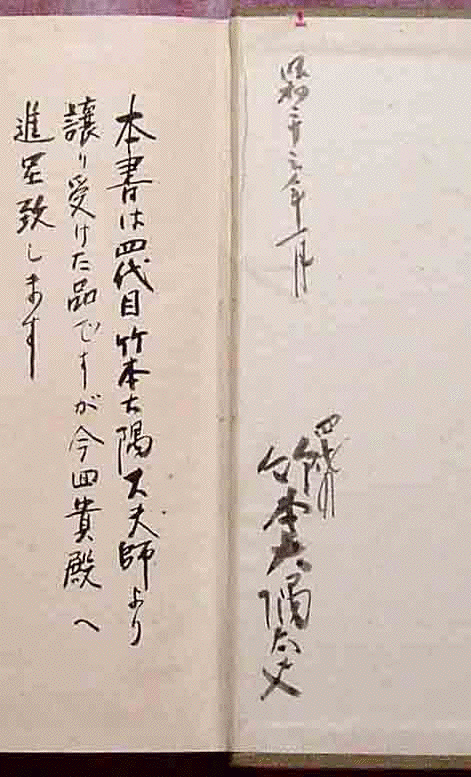 昭和二十三年一月
四代目
竹本大隅太夫
本書は四代目竹本大隅太夫師より
譲り受けた品ですが今回貴殿へ
進呈致します